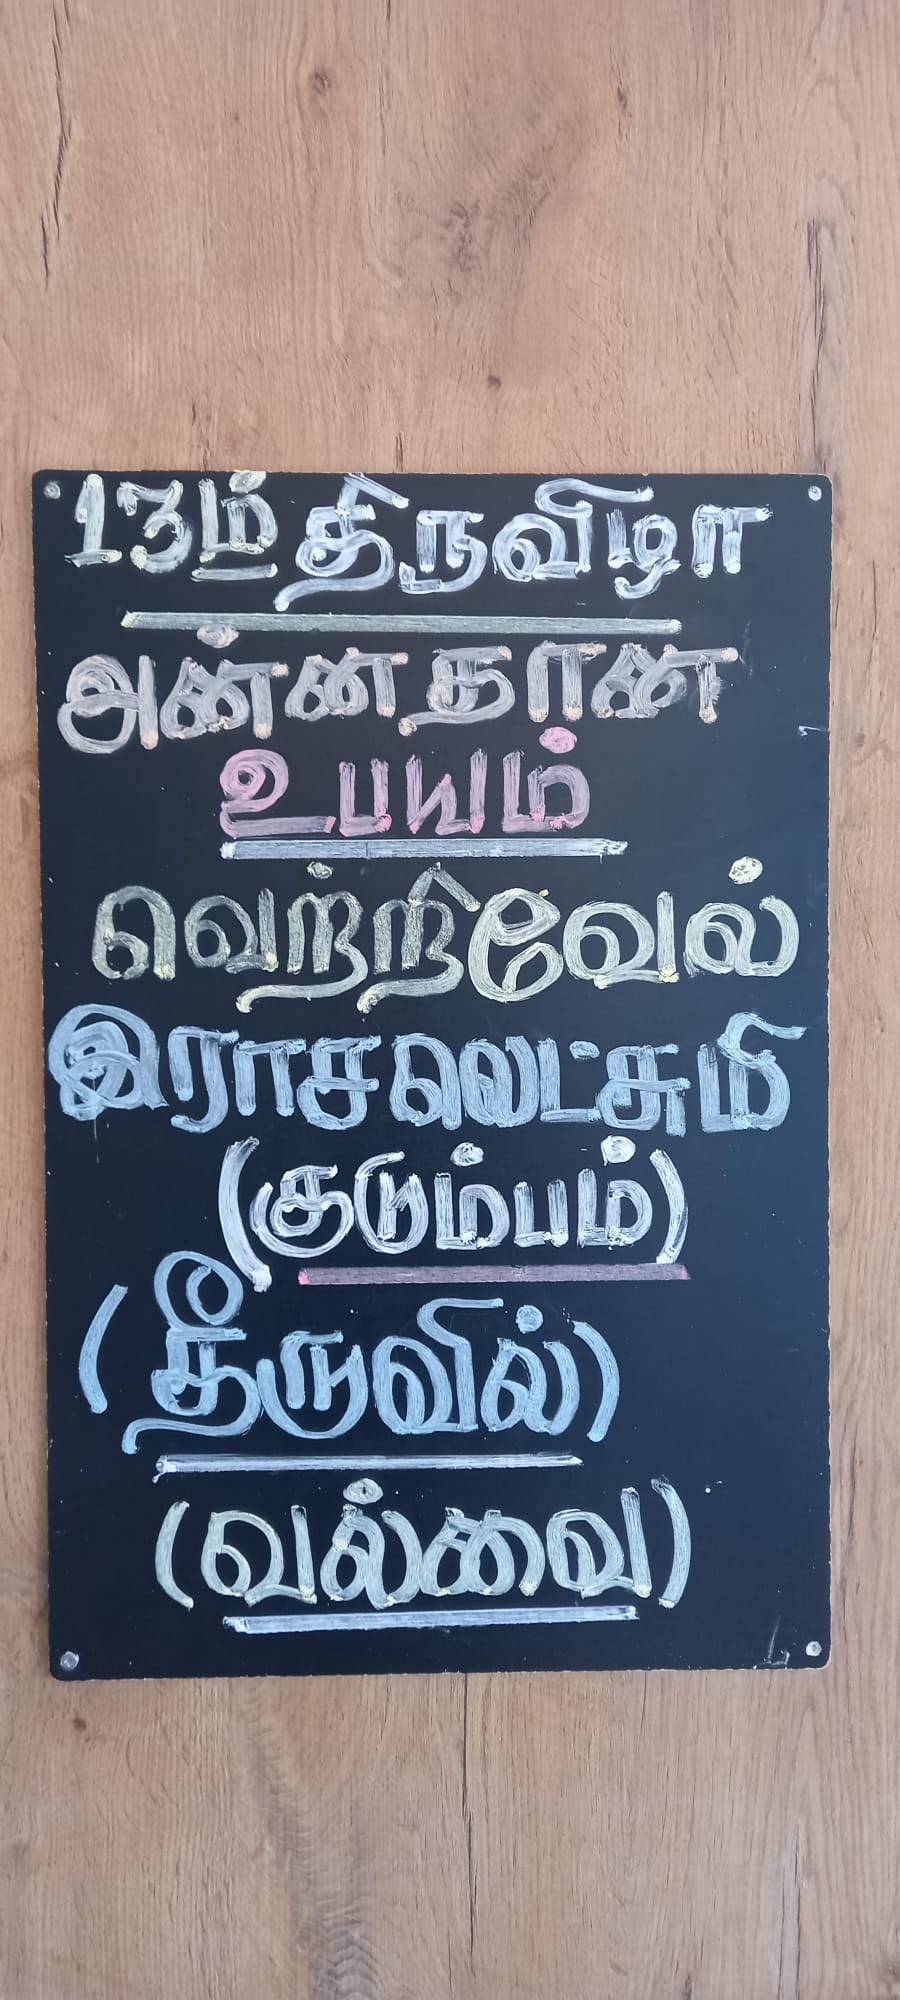 13ம் திருவிழா
அன்னதான
உபயம்
வெற்றிவேல்
இராசலெட்சுமி
(குடும்பம்)
(தீருவில்)
(வல்வை)